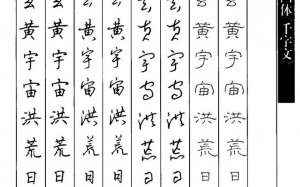 体 千字文
玄黄宇宙洪荒日
玄黄宇宙洪荒日
玄黄宇宙洪荒日
玄黄宇宙洪荒日
玄黄宇宙洪荒日
玄黄宇宙洪荒日
玄黄宇宙洪荒日
玄黄宇宙洪荒日